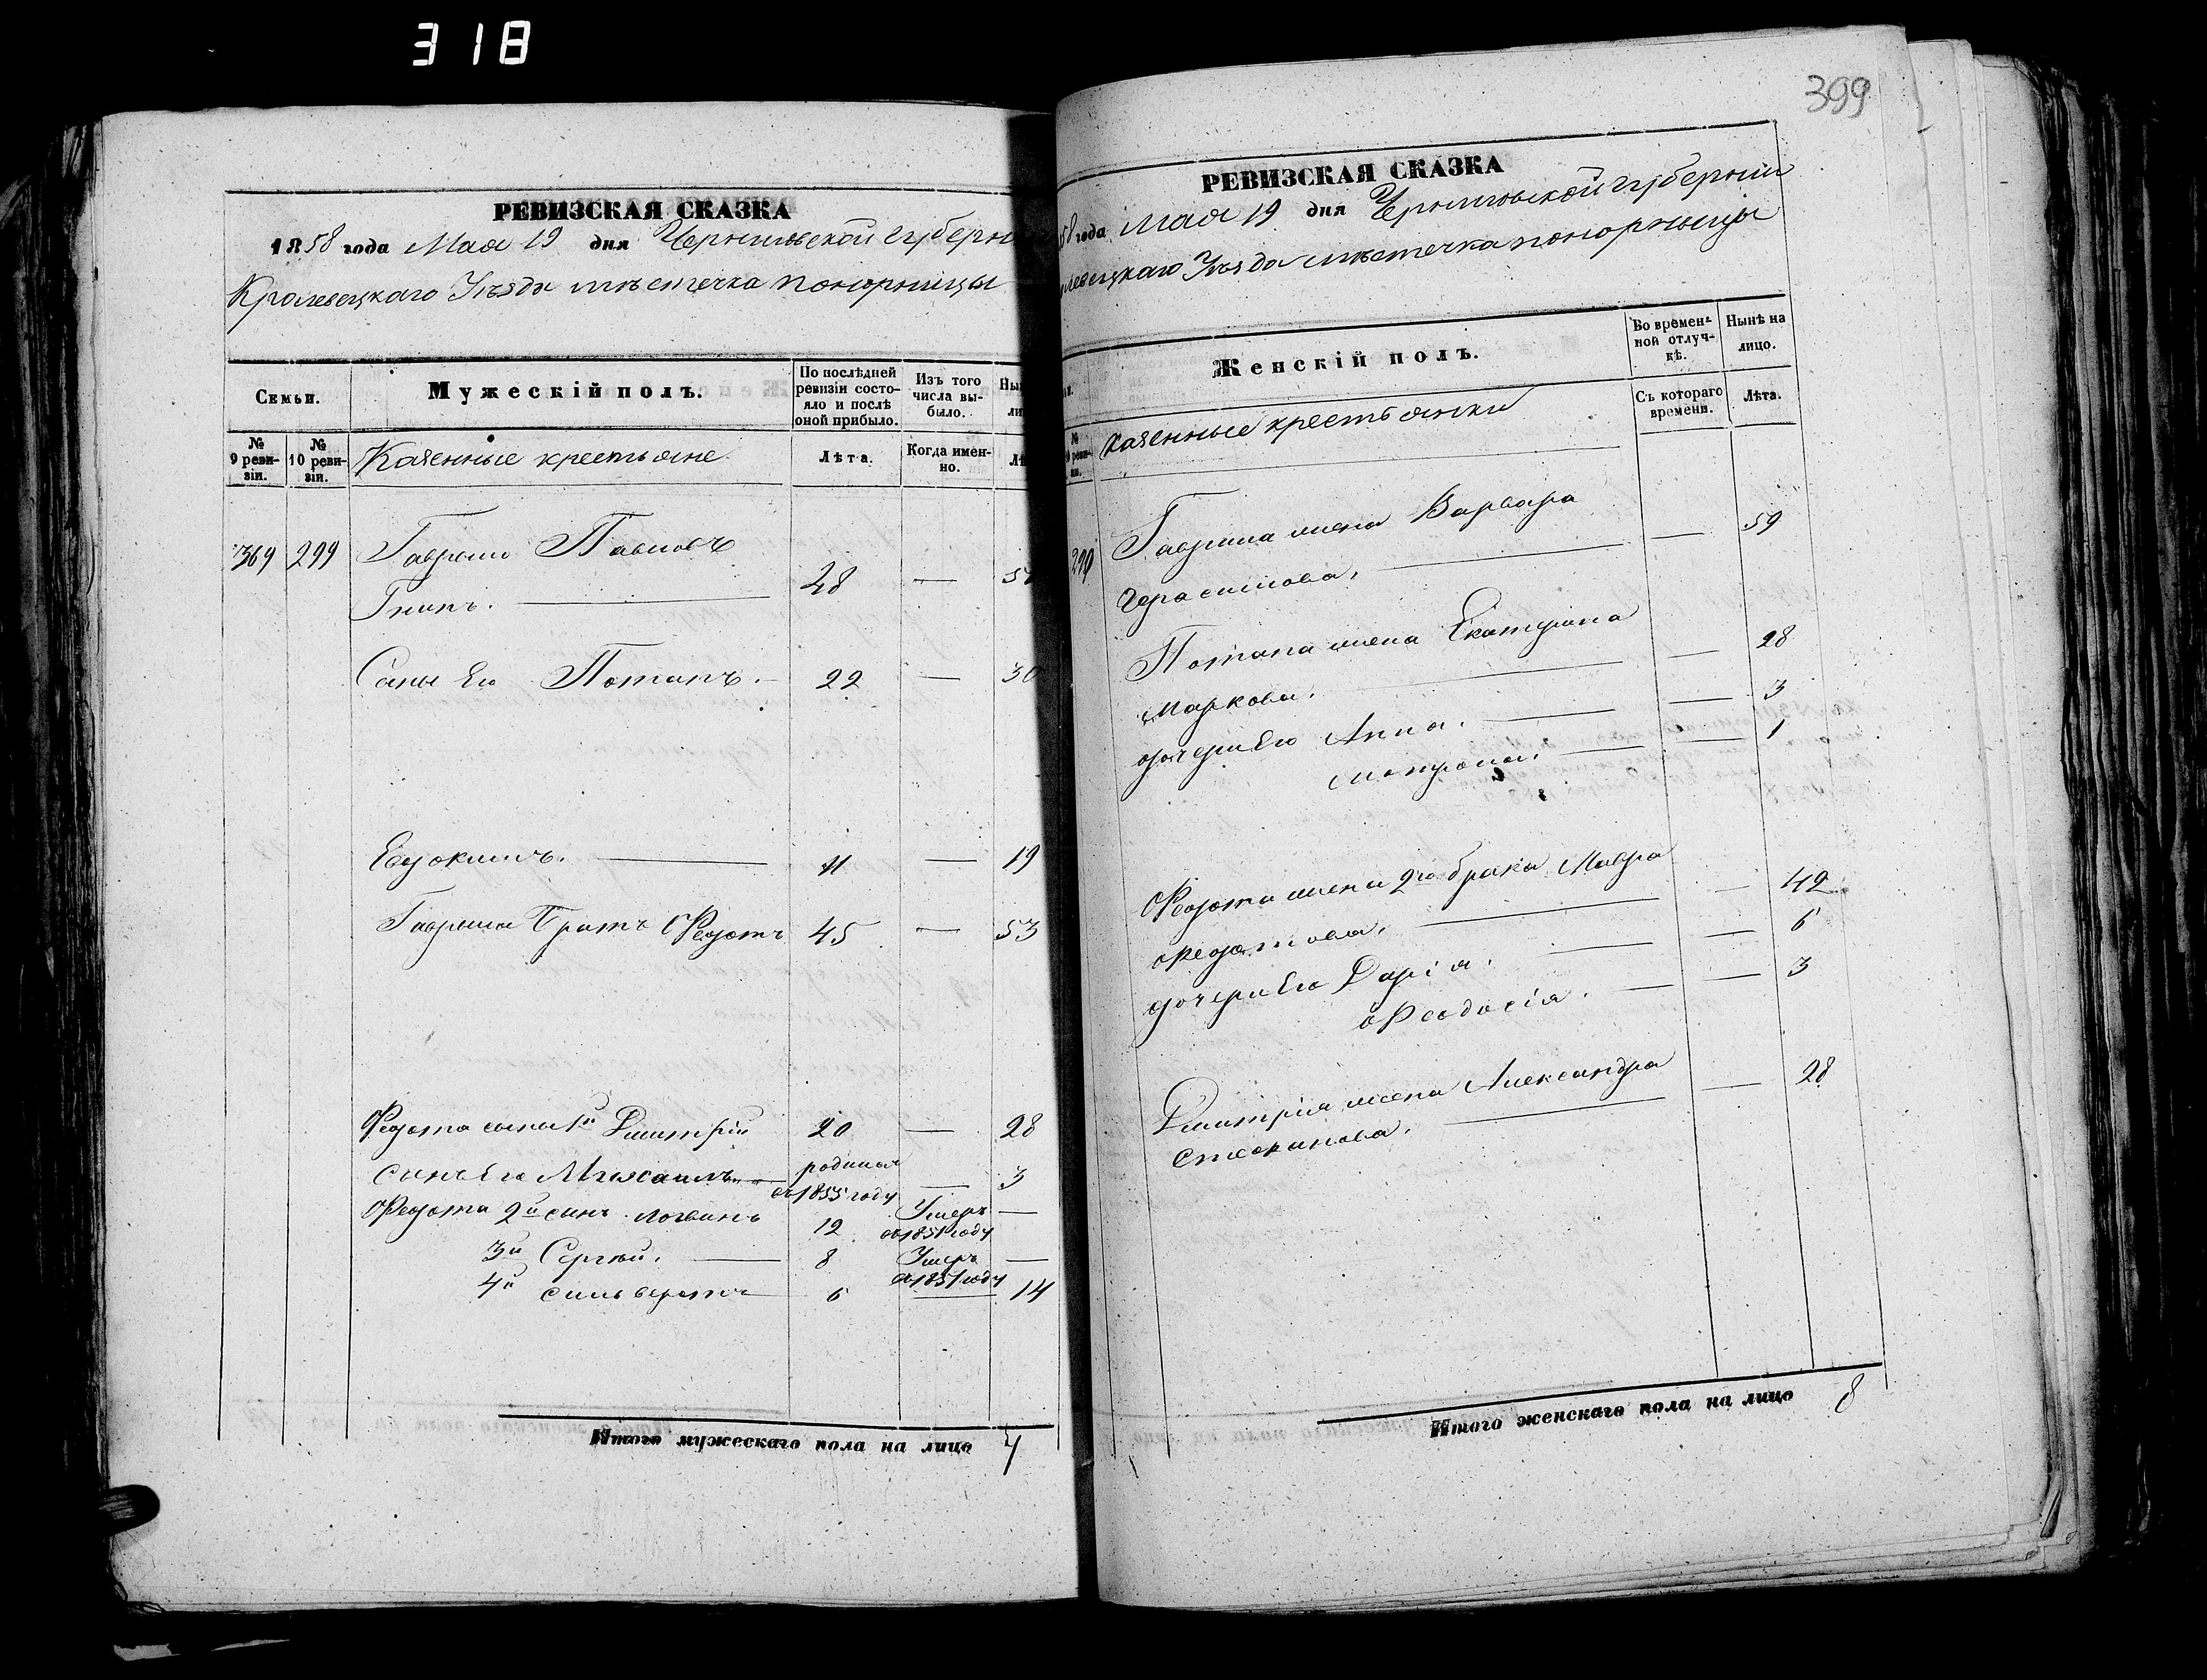 318
РЕВИЗСКАЯ СКАЗКА
1858 года Мая 19 дня Черниговской Губерн
Кролевецкаго Уѣзда мѣстечка Понорницы
Семьи.
Мужескій полъ.
По послѣдней ревизіи состо-
яло и послѣ
оной прибыло.
Изъ того
числа вы-
было.
№
9 реви-
зіи.
№
10 реви-
зіи.
Казенные крестьяне
Лѣта.
Когда имен-
но.
369 299 Гаврило Павловъ
Гнипъ. — 28 —
Сыны Его Потапъ. — 22 — 30
Евдокимъ. — 11 — 19
Гаврила Братъ Ѳедотъ 45 — 53
Ѳедота сыны 1й Дмитрій 20 — 28
Сынъ Его Михаилъ — родился
въ 1855 году — 3
Ѳедота 2й сынъ Логвинъ 12 Умеръ
въ 1851 году —
3й Сергѣй. — 8 Умеръ
въ 1851 году —
4й Сильверстъ 6 — 14
Итого мужескаго пола на лицо 7
399
РЕВИЗСКАЯ СКАЗКА
58 года Мая 19 дня Черниговской Губерніи
левецкаго Уѣзда мѣстечка Понорницы
Женскій полъ.
Во времен-
ной отлуч-
кѣ.
Нынѣ на
лицо.
Съ котораго
времени.
Лѣта.
Казенные крестьянки
299 Гаврила жена Варвара
Герасимова. — — 59
Потапа жена Екатерина
Маркова. — — 28
дочери Его Анна. — — 3
Мотрона. — — 1
Ѳедота жена 2го брака Мавра
Ѳедотова. — — 42
дочери Его Дарія. — — 6
Ѳеодосія. — — 3
Дмитрія жена Александра
Стефанова. — — 28
Итого женскаго пола на лицо 8